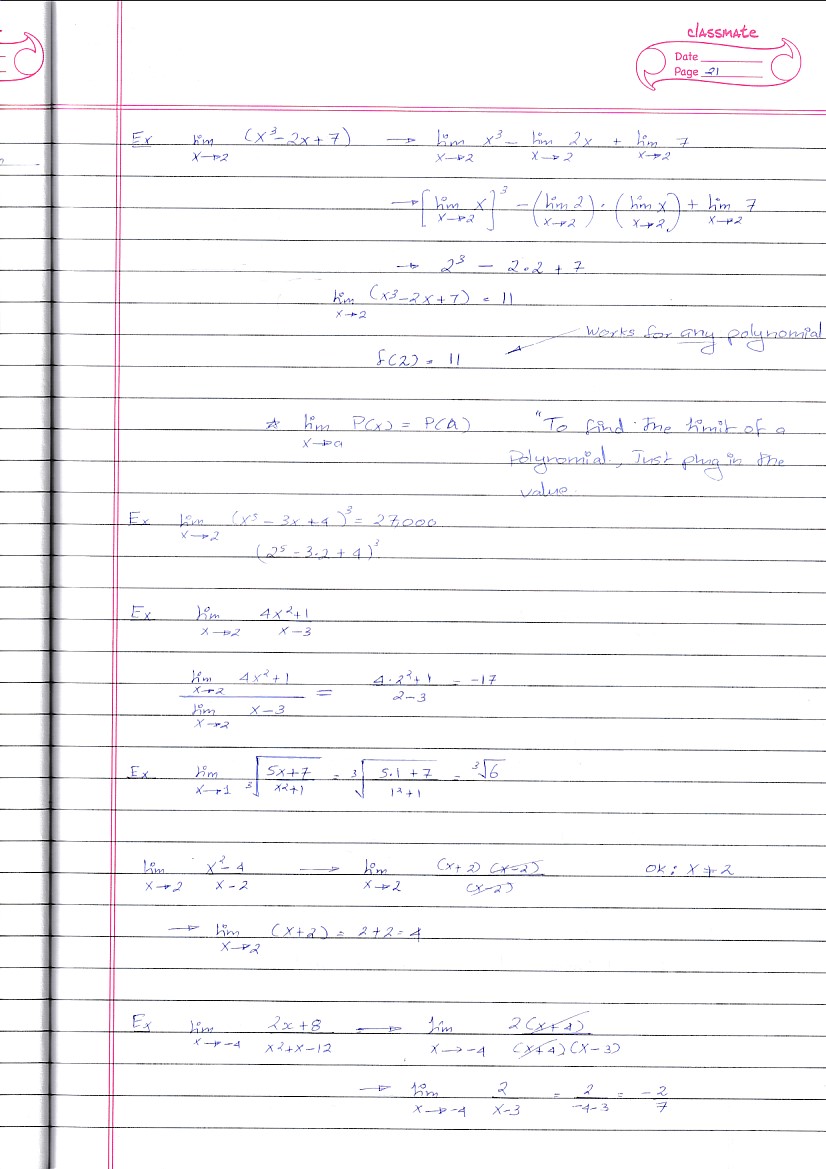 classmate
Date
Page 21
Ex lim x→2 (x³-2x+7) → lim x→2 x³ - lim x→2 2x + lim x→2 7
→ [lim x→2 x]³ - (lim x→2 2) · (lim x→2 x) + lim x→2 7
→ 2³ - 2·2 + 7
lim x→2 (x³-2x+7) = 11
Works for any polynomial
f(2) = 11
* lim x→a P(x) = P(A) "To find the limit of a
Polynomial, Just plug in the
value.
Ex lim x→2 (x⁵ - 3x + 4)³ = 27,000
(2⁵ - 3·2 + 4)³
Ex lim x→2 4x²+1 / x-3
lim x→2 4x²+1 / lim x→2 x-3 = 4·2²+1 / 2-3 = -17
Ex lim x→1 ³√(5x+7 / x²+1) = ³√(5·1+7 / 1²+1) = ³√6
lim x→2 x²-4 / x-2 → lim x→2 (x+2)(x-2) / (x-2) OK: x≠2
→ lim x→2 (x+2) = 2+2=4
Ex lim x→-4 2x+8 / x²+x-12 → lim x→-4 2(x+4) / (x+4)(x-3)
→ lim x→-4 2 / x-3 = 2 / -4-3 = -2 / 7